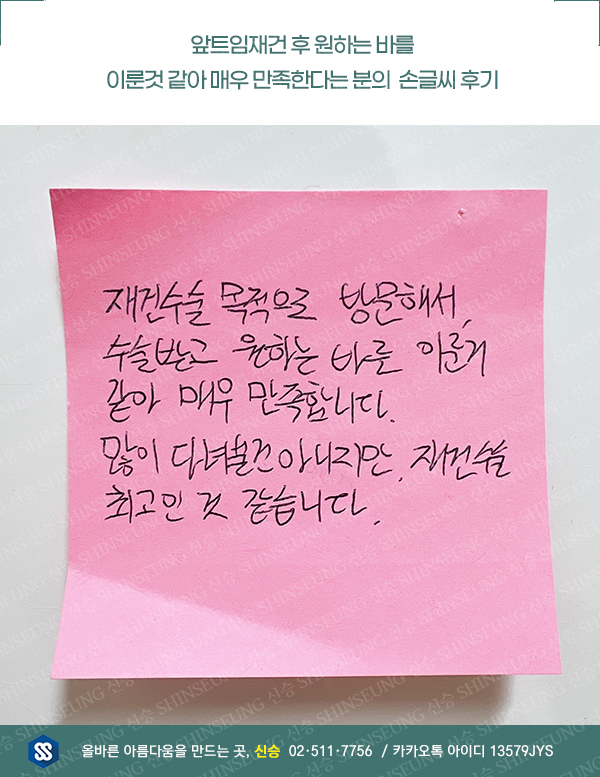 앞트임재건 후 원하는 바를
이룬것 같아 매우 만족한다는 분의 손글씨 후기
재건수술 목적으로 방문해서,
수술받고 원하는 바를 이룬거
같아 매우 만족합니다.
많이 다녀본건 아니지만, 재건수술
최고인 것 같습니다.
올바른 아름다움을 만드는 곳, 신승 02·511·7756 / 카카오톡 아이디 13579JYS
SHINSEUNG 신승